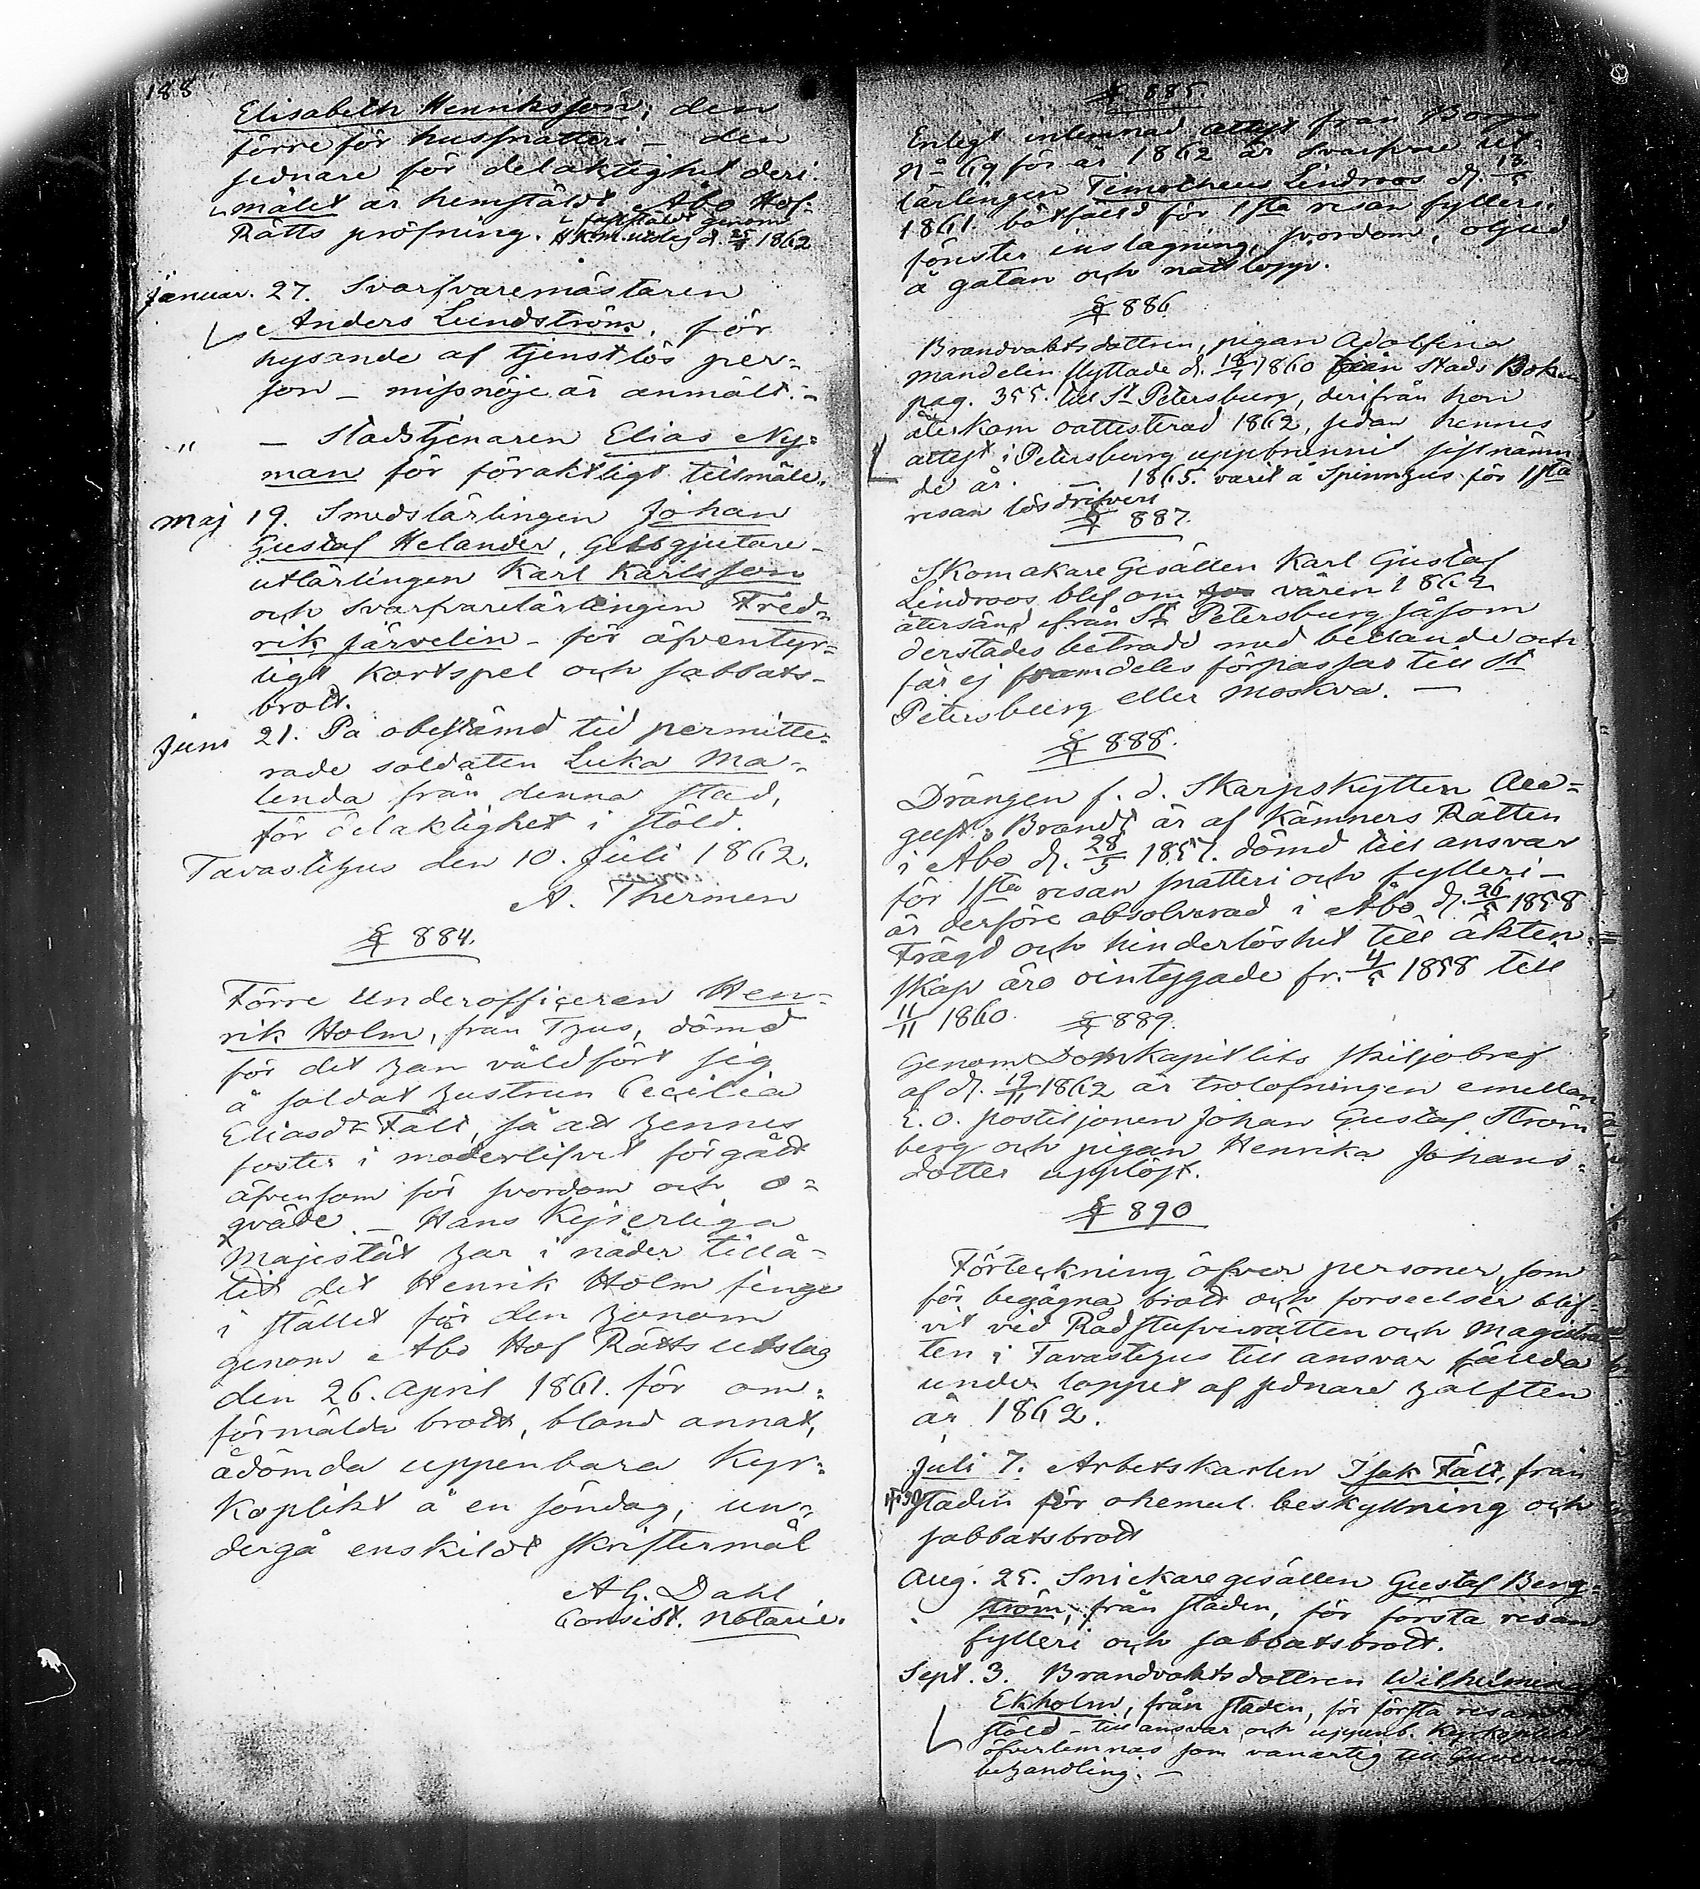 188
Elisabeth Henriksson; den
förre för hussnatteri – den
sednare för delaktighet deri.
målet är hemstäldt Åbo Hof-
Rätts pröfning. fastställdt genom
H.R.m. utslag d. 25/4 1862
Januar. 27. Svarfvaremästaren
Anders Lundström, för
hysande af tjenstlös per-
son – missnöje är anmält. –
" – Stadstjenaren Elias Ny-
man för föraktligt tillmäle.
Maj 19. Smedslärlingen Johan
Gustaf Helander, Gelbgjutare-
utlärlingen Karl Karlsson
och svarfvarelärlingen Fred-
rik Järvelin – för äfventyr-
ligt Kortspel och sabbats-
brott.
Juni 21. På obestämd tid permitte-
rade soldaten Luka Ma-
lenda från denna stad,
för delaktighet i stöld.
Tavastehus den 10. Juli 1862.
A. Thermen
§ 884.
Förre Underofficeren Hen-
rik Holm, från Thus, dömd
för det han våldfört sig
å soldat hustrun Cecilia
Eliasdr Fält, så att hennes
foster i moderlifvet förgått
äfvensom för svordom och o-
qväde. – Hans Kejserliga
Majestät har i nåder tillå-
tit det Henrik Holm finge
i stället för den honom
genom Åbo Hof Rätts utslag
den 26. April 1861. för om-
förmälda brott, bland annat,
ådömda uppenbara Kyr-
koplikt å en söndag, un-
dergå enskildt skriftermål
A G. Dahl
Consist. Notarie.
§ 885
Enligt inlemnad attest från Borgo
No 69 för år 1862 är svarfvare ut-
lärlingen Timotheus Lindroos d. 13/5
1861. bötfälld för 1sta resan fylleri,
fönster inslagning, svordom, oljud
å gatan och nattlopp.
§ 886
Brandvaktsdottren, pigan Adolfina
Mandelin flyttade d. 18/7 1860 från Stads Boken
pag. 355. till St Petersburg, derifrån hon
återkom oattesterad 1862, sedan hennes
attest i Petersburg uppbrunnit sistnämn
de år. – 1865. varit å Spinnhus för 1sta
resan lösdrifveri
§ 887.
Skomakare Gesällen Karl Gustaf
Lindroos blef om våren 1862
återsänd ifrån St Petersburg såsom
derstädes beträdd med betlande och
får ej framdeles förpassas till St
Petersburg eller Moskva. –
§ 888.
Drängen f. d. Skarpskytten Au-
gust Brandt är af Kämners Rätten
i Åbo d. 28/5 1857. dömd till ansvar
för 1sta resan snatteri och fylleri –
är derföre absolverad i Åbo d. 26/5 1858
Frägd och hinderlöshet till äkten-
skap äro ointygade fr. 4/5 1858 till
11/11 1860.
§ 889.
Genom Domkapitlits skiljobref
af d. 19/11 1862 är trolofningen emellan
E. O. postiljonen Johan Gustaf Ström
berg och pigan Henrika Johans-
dotter upplöst.
§ 890
Förteckning öfver personer, som
för begångna brott och forseelser blif-
vit vid Rådstufvurätten och Magistra
ten i Tavastehus till ansvar fällda
under loppet af sednare hälften
år 1862.
Juli 7. Arbetskarlen Isak Fält, från
staden för okemul beskyllning och
sabbatsbrott
Aug. 25. Snickaregesällen Gustaf Berg-
ström, från staden, för första resan
fylleri och sabbatsbrott.
Sept. 3. Brandvaktsdottren Wilhelmina
Ekholm, från staden, för första resan
stöld – till ansvar och uppenb. Kyrkoplikt
öfverlemnas som vanartig till Guvernörs
behandling. –